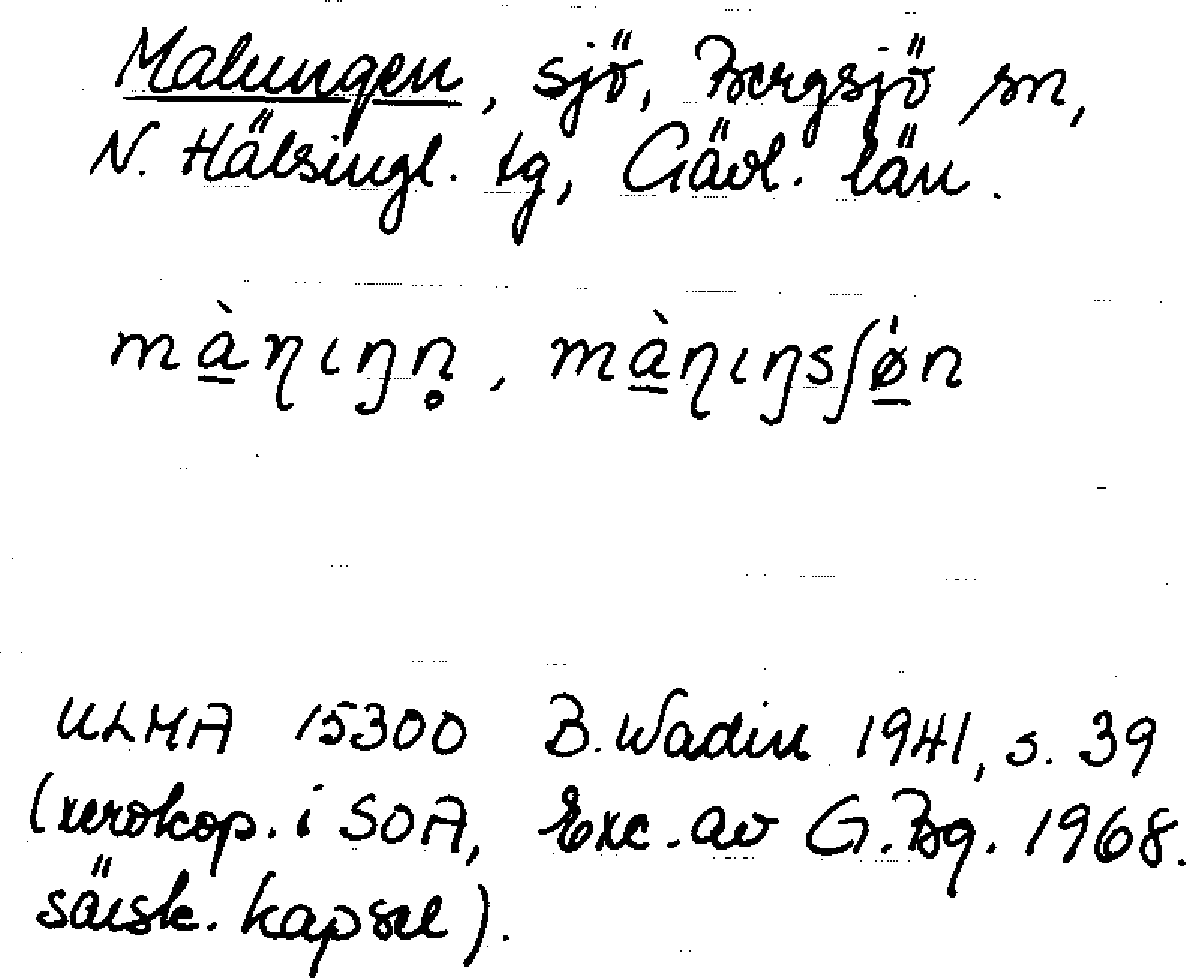 Malungen, sjö, Bergsjö sn,
N. Hälsingl. tg, Gävl. län.
mà̱ƞɩŋn̥, mà̱ƞɩŋsʃø̱̍n
ULMA 15300 B. Wadin 1941, s. 39
(xerokop. i SOA, Exc. av G. Bg. 1968.
särsk. kapsel).